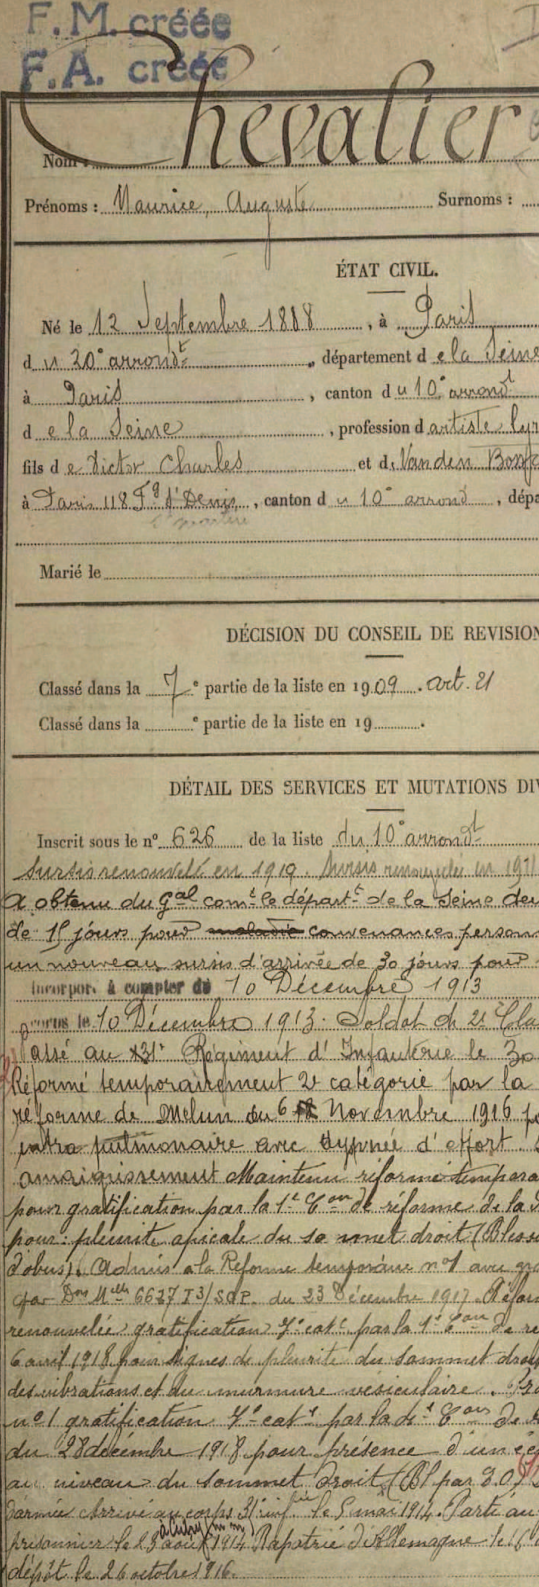 F.M. créée
F.A. créée
Nom : Chevalier
Prénoms : Maurice, Auguste Surnoms :
ÉTAT CIVIL.
Né le 12 Septembre 1888, à Paris
du 20e arrondt, département de la Seine
à Paris, canton du 10e arrondt
de la Seine, profession d'artiste lyr
fils de Victor Charles et d
à Paris 118 Fg St Denis, canton du 10e arrond, dépa
Marié le
DÉCISION DU CONSEIL DE REVISION
Classé dans la 7e partie de la liste en 1909. art. 21
Classé dans la e partie de la liste en 19 .
DÉTAIL DES SERVICES ET MUTATIONS DIV
Inscrit sous le n° 626 de la liste du 10e arrondt
Sursis renouvelé en 1910. Sursis renouvelé en 1911
A obtenu du Gal comt le départt de la Seine
de 15 jours pour maladie convenances person
un nouveau sursis d'arrivée de 30 jours pour
Incorporé à compter du 10 Décembre 1913
corps le 10 Décembre 1913. Soldat de 2e Cla
Passé au 31e Régiment d'Infanterie le 30
Réformé temporairement 2e catégorie par la
réforme de Melun du 6 Novembre 1916
intra pulmonaire avec dypnée d'effort.
amaigrissement Maintenu réformé tempora
pour gratification par la 1e Con de réforme de la
pour : pleurite apicale du sommet droit (Bless
d'obus). Admis à la Réforme temporaire n°1 avec
par Don Mlle 6627 I3/SGP. du 23 Décembre 1917. Réfor
renouvelée gratification 7e cate par la 1e Con de ré
6 avril 1918 pour signes de pleurite du sommet droi
des vibrations et du murmure vésiculaire.
n°1 gratification 7e cate par la Con de
du 28 décembre 1918 pour présence d'un éc
au niveau du sommet droit (Bl par
d'armée Arrivé au corps 31e infie le 5 mai 1914. Parti au
prisonnier le août 1914 Rapatrié d'Allemagne le
dépôt le 26 octobre 1916.